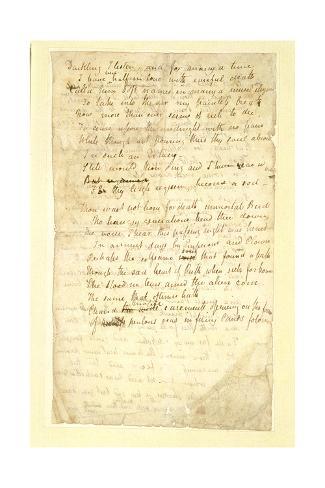 Darkling I listen, and for many a time
I have been half in love with easeful death
Call'd him soft names in many a mused rhyme
To take into the air my painless breath
Now more than ever seems it rich to die
To cease upon the midnight with no pain
While thou art pouring thus thy soul abroad
In such an Extacy
Still would thou sing and I have ears in
But
For thy high requiem, become a sod
Thou wast not born for death immortal Bird
No hungry generations tread thee down
The voice I hear this passing night was heard
In ancient days by Emperour and Clown
Perhaps the selfsame voice that found a path
Through the sad heart of Ruth when sick for home
She stood in tears amid the alien corn
The same that oftimes hath
Charm'd the wide casements opening on the foam
Of perilous seas in fairy lands forlorn